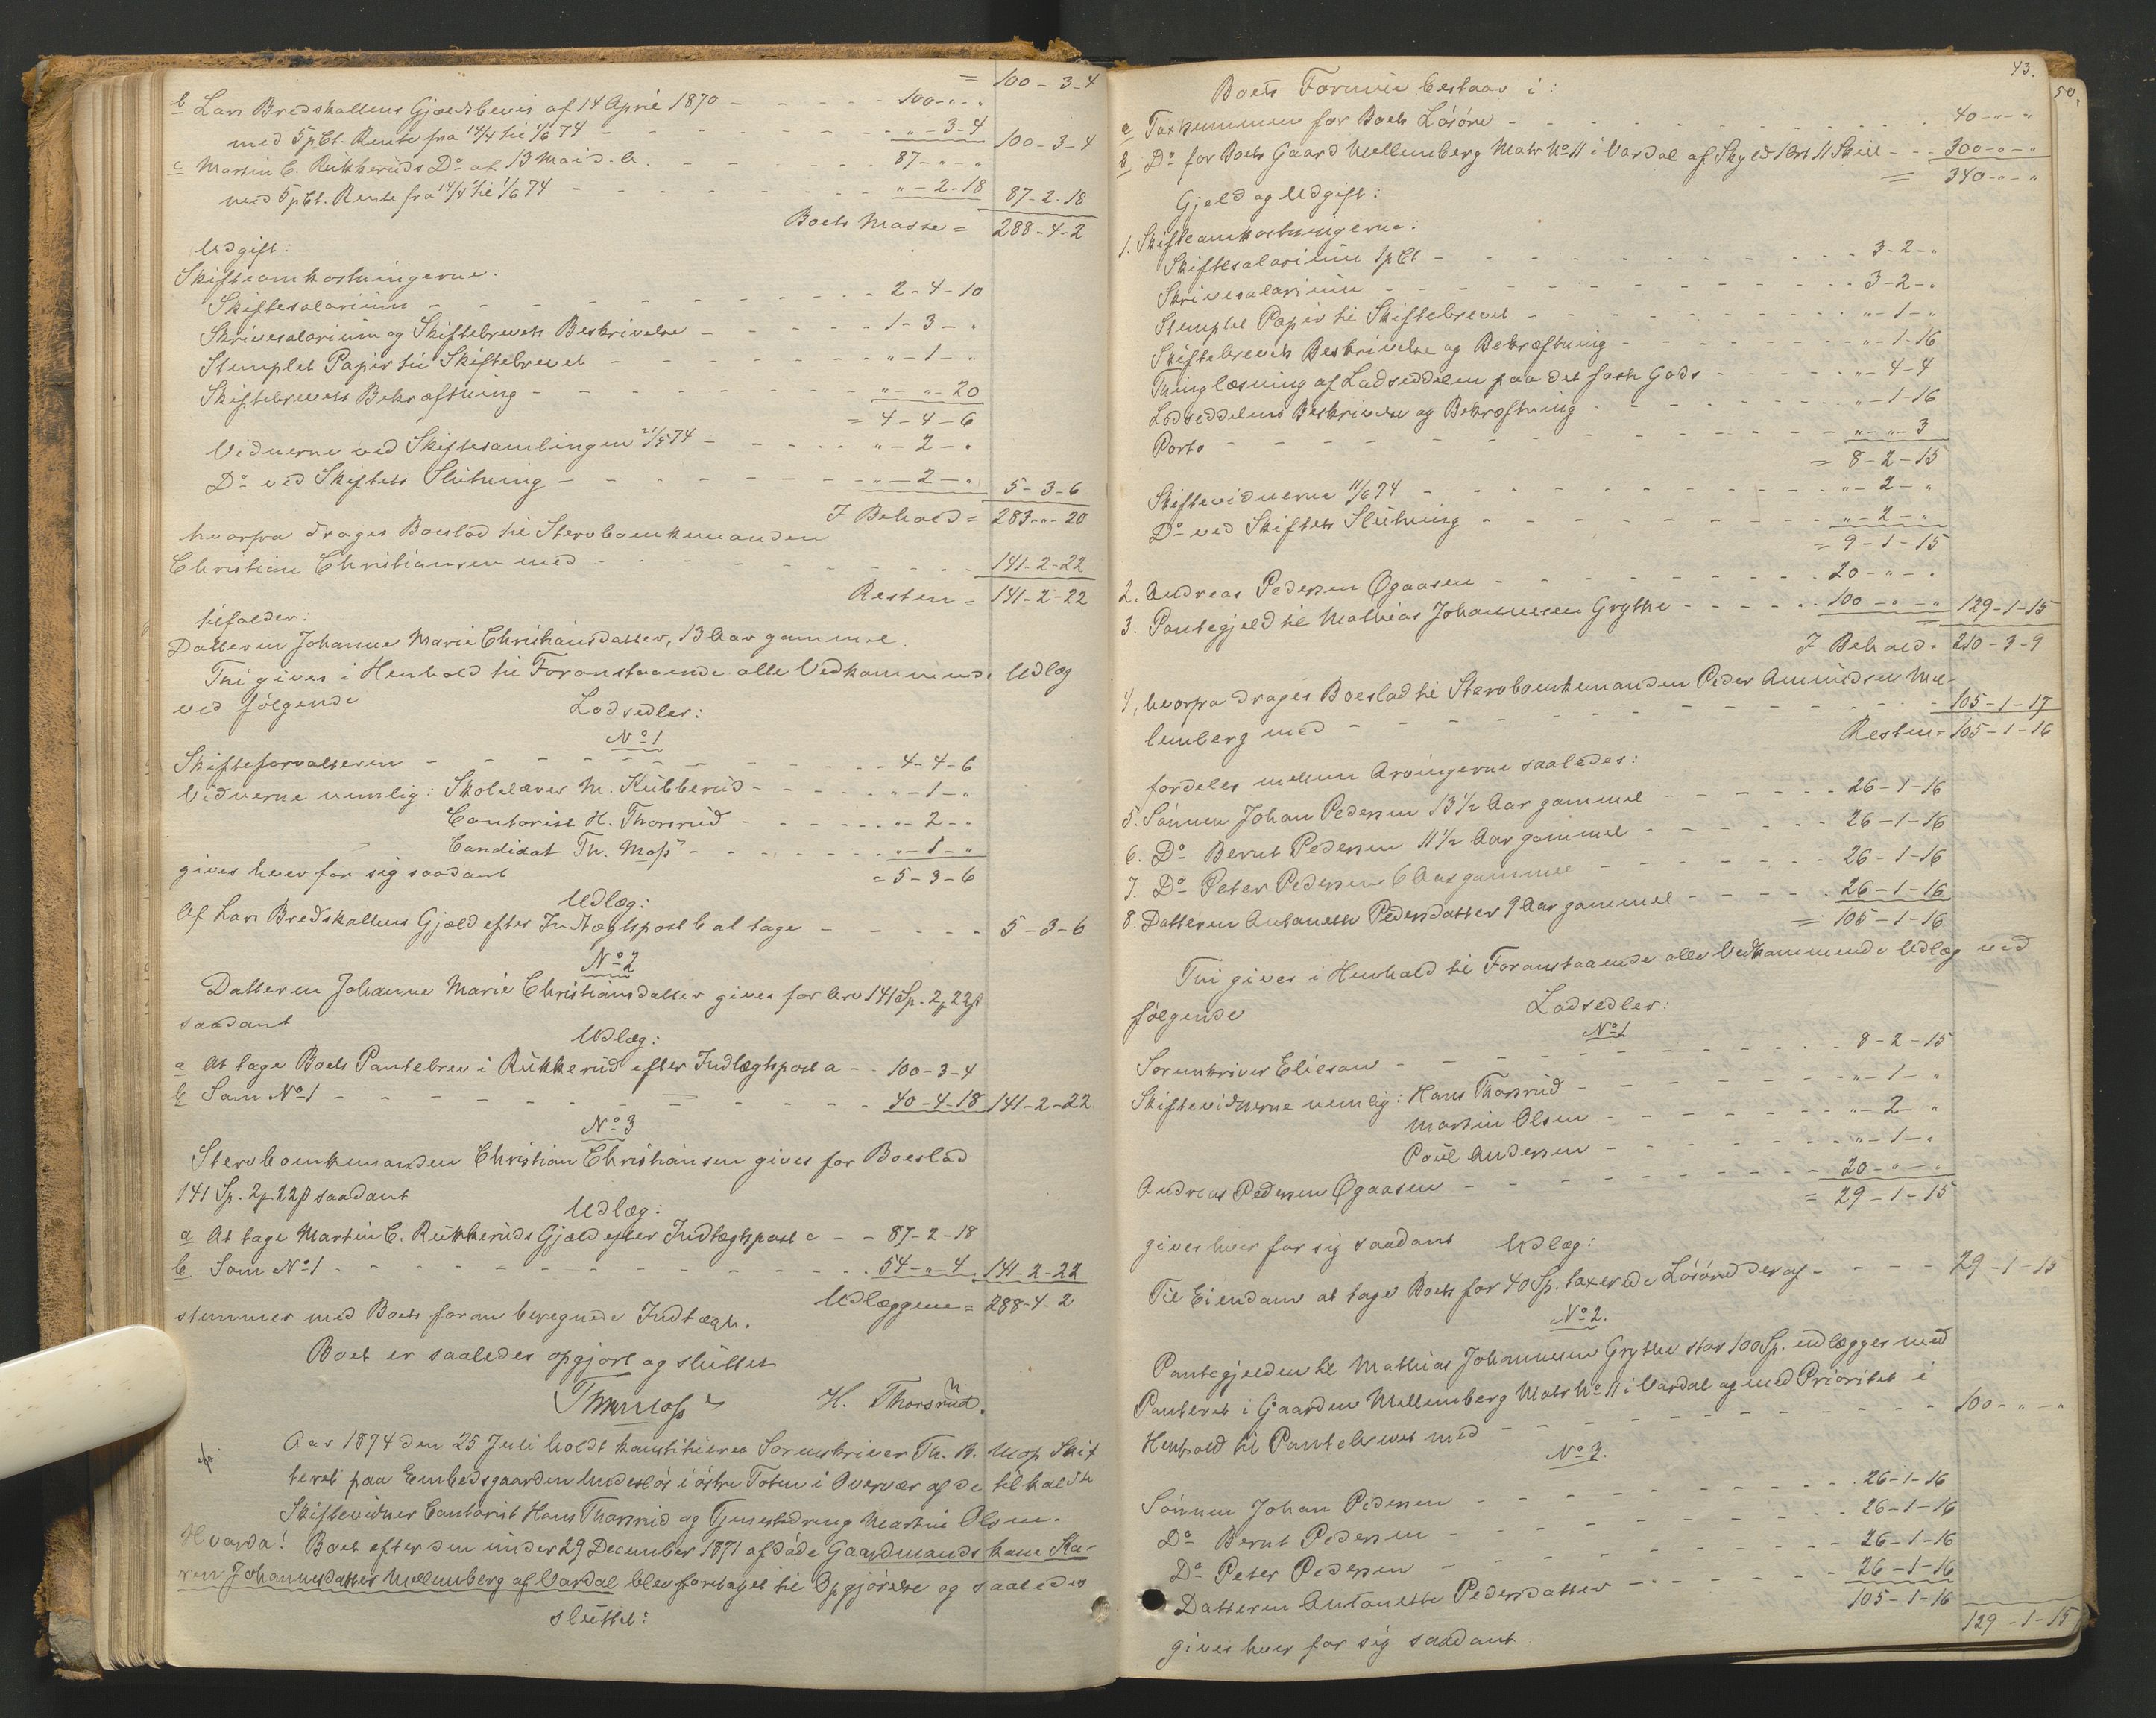 = 100-3-4
b Lars Bredskallens Gjældsbevis af 14 April 1870 - 100-"-"
med 5 pCt. Rente fra 14/4 til 1/6 74 - "-3-4 100-3-4
c Martin C. Rukkeruds Do af 13 Mai d. A. - 87-"-"
med 5 pCt. Rente fra 14/4 til 1/6 74 - "-2-18 87-2-18
Boets Masse = 288-4-2
Udgift:
Skifteomkostningerne:
Skiftesalarium - 2-4-10
Skrivesalarium og Skiftebrevets Beskrivelse - 1-3-"
Stemplet Papir til Skiftebrevet - "-1-"
Skiftebrevets Bekræftning - "-"-20
= 4-4-6
Vidnerne ved Skiftesamlingen 21/5 74 - "-2-"
Do ved Skiftets Slutning - "-2-" 5-3-6
I Behold = 283-"-20
hvorfra drages Boeslod til Stervboenkemanden
Christian Christiansen med - 141-2-22
Resten = 141-2-22
tilfalder:
Datteren Johanne Marie Christiansdatter, 13 Aar gammel.
Thi gives i Henhold til Foranstaaende alle Vedkommende Udlæg
ved følgende
Lodsedler:
No 1
Skifteforvalteren - 4-4-6
Vidnerne nemlig: Skolelærer M. Kubberud - "-1-"
Cantorist H. Thorsrud - "-2-"
Candidat Th. Moss - "-1-"
gives hver for sig saadant = 5-3-6
Udlæg:
Af Lars Bredskallens Gjæld efter Indtægtspost b at tage - 5-3-6
No 2
Datteren Johanne Marie Christiansdatter gives for Arv 141 Sp. 2 22
saadant
Udlæg:
a At tage Boets Pantebrev i Rukkerud efter Indtægtspost a - 100-3-4
b Som No 1 - 40-4-18 141-2-22
No 3
Stervboenkemanden Christian Christiansen gives for Boeslod
141 Sp. 2 22 saadant
Udlæg:
a At tage Martin C. Rukkeruds Gjæld efter Indtægtspost c - 87-2-18
b Som No 1 - 54-"-4 141-2-22
Udlæggene = 288-4-2
stemmer med Boets foran beregnede Indtægt.
Boet er saaledes opgjort og sluttet
Th Moss H. Thorsrud.
Aar 1874 den 25 Juli holdt konstitueret Sorenskriver Th. B. Moss Skif
teret paa Embedsgaarden Undesløs i østre Toten i Overvær af de tilkaldte
Skiftevidner Cantorist Hans Thorsrud og Tjenestedreng Martin Olsen.
Hvorda! Boet efter den under 29 December 1871 afdøde Gaardmandskone Ka-
ren Johannesdatter Mellemberg af Vardal blev foretaget til Opgjørelse og saaledes
sluttet:
43.
50.
Boets Formue bestaar i:
a Taxtsummen for Boets Løsøre - 40-"-"
b Do for Boets Gaard Mellemberg Matr No 11 i Vardal af Skyld 1 Ort 11 Skill - 300-"-"
= 340-"-"
Gjeld og Udgift:
1. Skifteomkostningerne:
Skiftesalarium 1 pCt - 3-2-"
Skrivesalarium - 3-2-"
Stemplet Papir til Skiftebrevet - "-1-"
Skiftebrevets Beskrivelse og Bekræftning - "-1-16
Thinglæsning af Lodseddelen paa det faste Gods - "-4-4
Lodseddelens Beskrivelse og Bekræftning - "-1-16
Porto - "-"-3
= 8-2-15
Skiftevidnerne 11/6 74 - "-2-"
Do ved Skiftets Slutning - "-2-"
= 9-1-15
2. Andreas Pedersen Øgaasen - 20-"-"
3. Pantegjeld til Mathias Johannesen Grythe - 100-"-" 129-1-15
I Behold = 210-3-9
4, hvorfra drages Boeslod til Stervboenkemanden Peder Amundsen Mel-
lemberg med - 105-1-17
Resten = 105-1-16
fordeles mellem Arvingerne saaledes:
5. Sønnen Johan Pedersen 13 1/2 Aar gammel - 26-1-16
6. Do Bernt Pedersen 11 1/2 Aar gammel - 26-1-16
7. Do Peter Pedersen 6 Aar gammel - 26-1-16
8. Datteren Antonette Pedersdatter 9 Aar gammel - 26-1-16
= 105-1-16
Thi gives i Henhold til Foranstaaende alle Vedkommende Udlæg ved
følgende
Lodsedler:
No 1
Sorenskriver Elieson - 8-2-15
Skiftevidnerne nemlig: Hans Thorsrud - "-1-"
Martin Olsen - "-2-"
Poul Andersen - "-1-"
Andreas Pedersen Øgaasen - 20-"-"
= 29-1-15
gives hver for sig saadant Udlæg:
Til Eiendom at tage Boets for 40 Sp. taxerede Løsøre deraf - 29-1-15
No 2.
Pantegjelden til Mathias Johannesen Grythe stor 100 Sp. udlægges med
Panteret i Gaarden Mellemberg Matr No 11 i Vardal og med Prioritet i
Henhold til Pantebrevet med - 100-"-"
No 3.
Sønnen Johan Pedersen - 26-1-16
Do Bernt Pedersen - 26-1-16
Do Peter Pedersen - 26-1-16
Datteren Antonette Pedersdatter - 26-1-16
105-1-16
gives hver for sig saadant 129-1-15